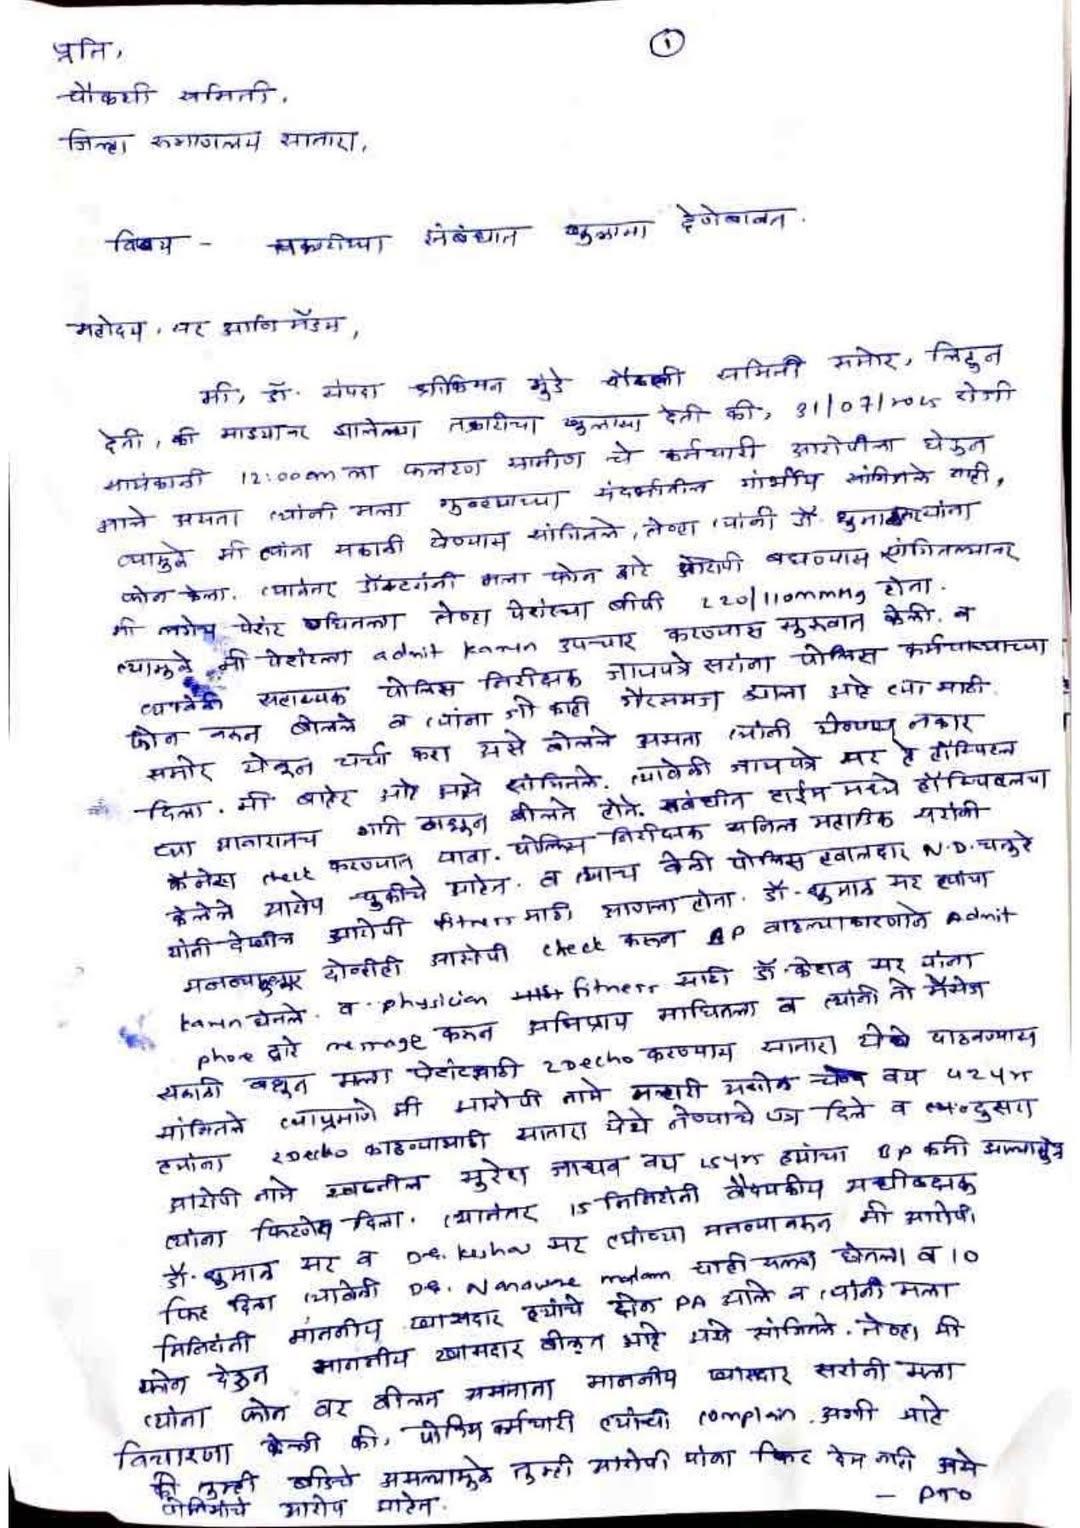 ①
प्रति,
चौकशी समिती,
जिल्हा रुग्णालय सातारा,
विषय - तक्रारीच्या संबंधात खुलासा देणेबाबत.
महोदय, सर आणि मॅडम,
मी, डॉ. संपदा श्रीकिसन मुंडे चौकशी समिती समोर, लिहून
देती, की माझ्यावर झालेल्या तक्रारीचा खुलासा देती की, 31/07/2025 रोजी
सायंकाळी 12:00am ला फलटण ग्रामीण चे कर्मचारी आरोपीला घेऊन
आले असता त्यांनी मला गुन्ह्याच्या संदर्भातील गांभीर्य सांगितले नाही,
त्यामुळे मी त्यांना सकाळी येण्यास सांगितले, तेव्हा त्यांनी डॉ. धुमाळ यांना
फोन केला. त्यानंतर डॉक्टरांनी मला फोन द्वारे आरोपी बघण्यास सांगितल्यानंतर
मी लगेच पेशंट बघितला तेव्हा पेशंटचा बीपी 220/110mmHg होता.
त्यामुळे मी पेशंटला admit करून उपचार करण्यास सुरुवात केली. व
त्यावेळी सहाय्यक पोलिस निरीक्षक जायपत्रे सरांना पोलिस कर्मचाऱ्याच्या
फोन वरून बोलले व त्यांना जो काही गैरसमज झाला आहे त्या साठी
समोर येऊन चर्चा करा असे बोलले असता त्यांनी येण्यास नकार
दिला. मी बाहेर आहे असे सांगितले. त्यावेळी जायपत्रे सर हे हॉस्पिटल
च्या आवारातच गाडी लावून बोलत होते. संबंधीत टाईम मध्ये हॉस्पिटलचा
कॅमेरा check करण्यात यावा. पोलिस निरीक्षक सुनिल महाडिक सरांनी
केलेले आरोप चुकीचे आहेत. व त्याच वेळी पोलिस हवालदार N.D. चतुरे
यांनी देखील आरोपी fitness साठी आणला होता. डॉ. धुमाळ सर ह्यांच्या
म्हणण्यानुसार दोन्हीही आरोपी check करून BP वाढल्याकारणाने Admit
करून घेतले. व physician fitness साठी डॉ. केशव सर यांना
phone द्वारे message करून अभिप्राय मागितला व त्यांनी तो मॅसेज
सकाळी बघून मला पेशंटसाठी 2Decho करण्यास सातारा येथे पाठवण्यास
सांगितले त्याप्रमाणे मी आरोपी नामे मल्हारी अशोक चव्हाण वय 42yr
ह्यांना 2Decho काढण्यासाठी सातारा येथे नेण्याचे पत्र दिले व दुसरा
आरोपी नामे स्वप्नील सुरेश जाधव वय ह्यांचा BP कमी असल्यामुळे
त्यांना फिटनेस दिला. त्यानंतर 15 मिनिटांनी वैद्यकीय अधीक्षक
डॉ. धुमाळ सर व Dr. Keshav सर त्यांच्या म्हणण्यावरून मी आरोपी
फिट दिला त्यावेळी Dr. Nanaware madam चाही सल्ला घेतला व 10
मिनिटांनी माननीय खासदार ह्यांचे दोन PA आले व त्यांनी मला
फोन देऊन माननीय खासदार बोलत आहे असे सांगितले. तेव्हा मी
त्यांना फोन वर बोलत असताना माननीय खासदार सरांनी मला
विचारणा केली की, पोलिस कर्मचारी त्यांची complain अशी आहे
की तुम्ही बीडचे असल्यामुळे तुम्ही आरोपी यांना फिट देत नाही असे
पोलिसांचे आरोप आहेत.
- PTO